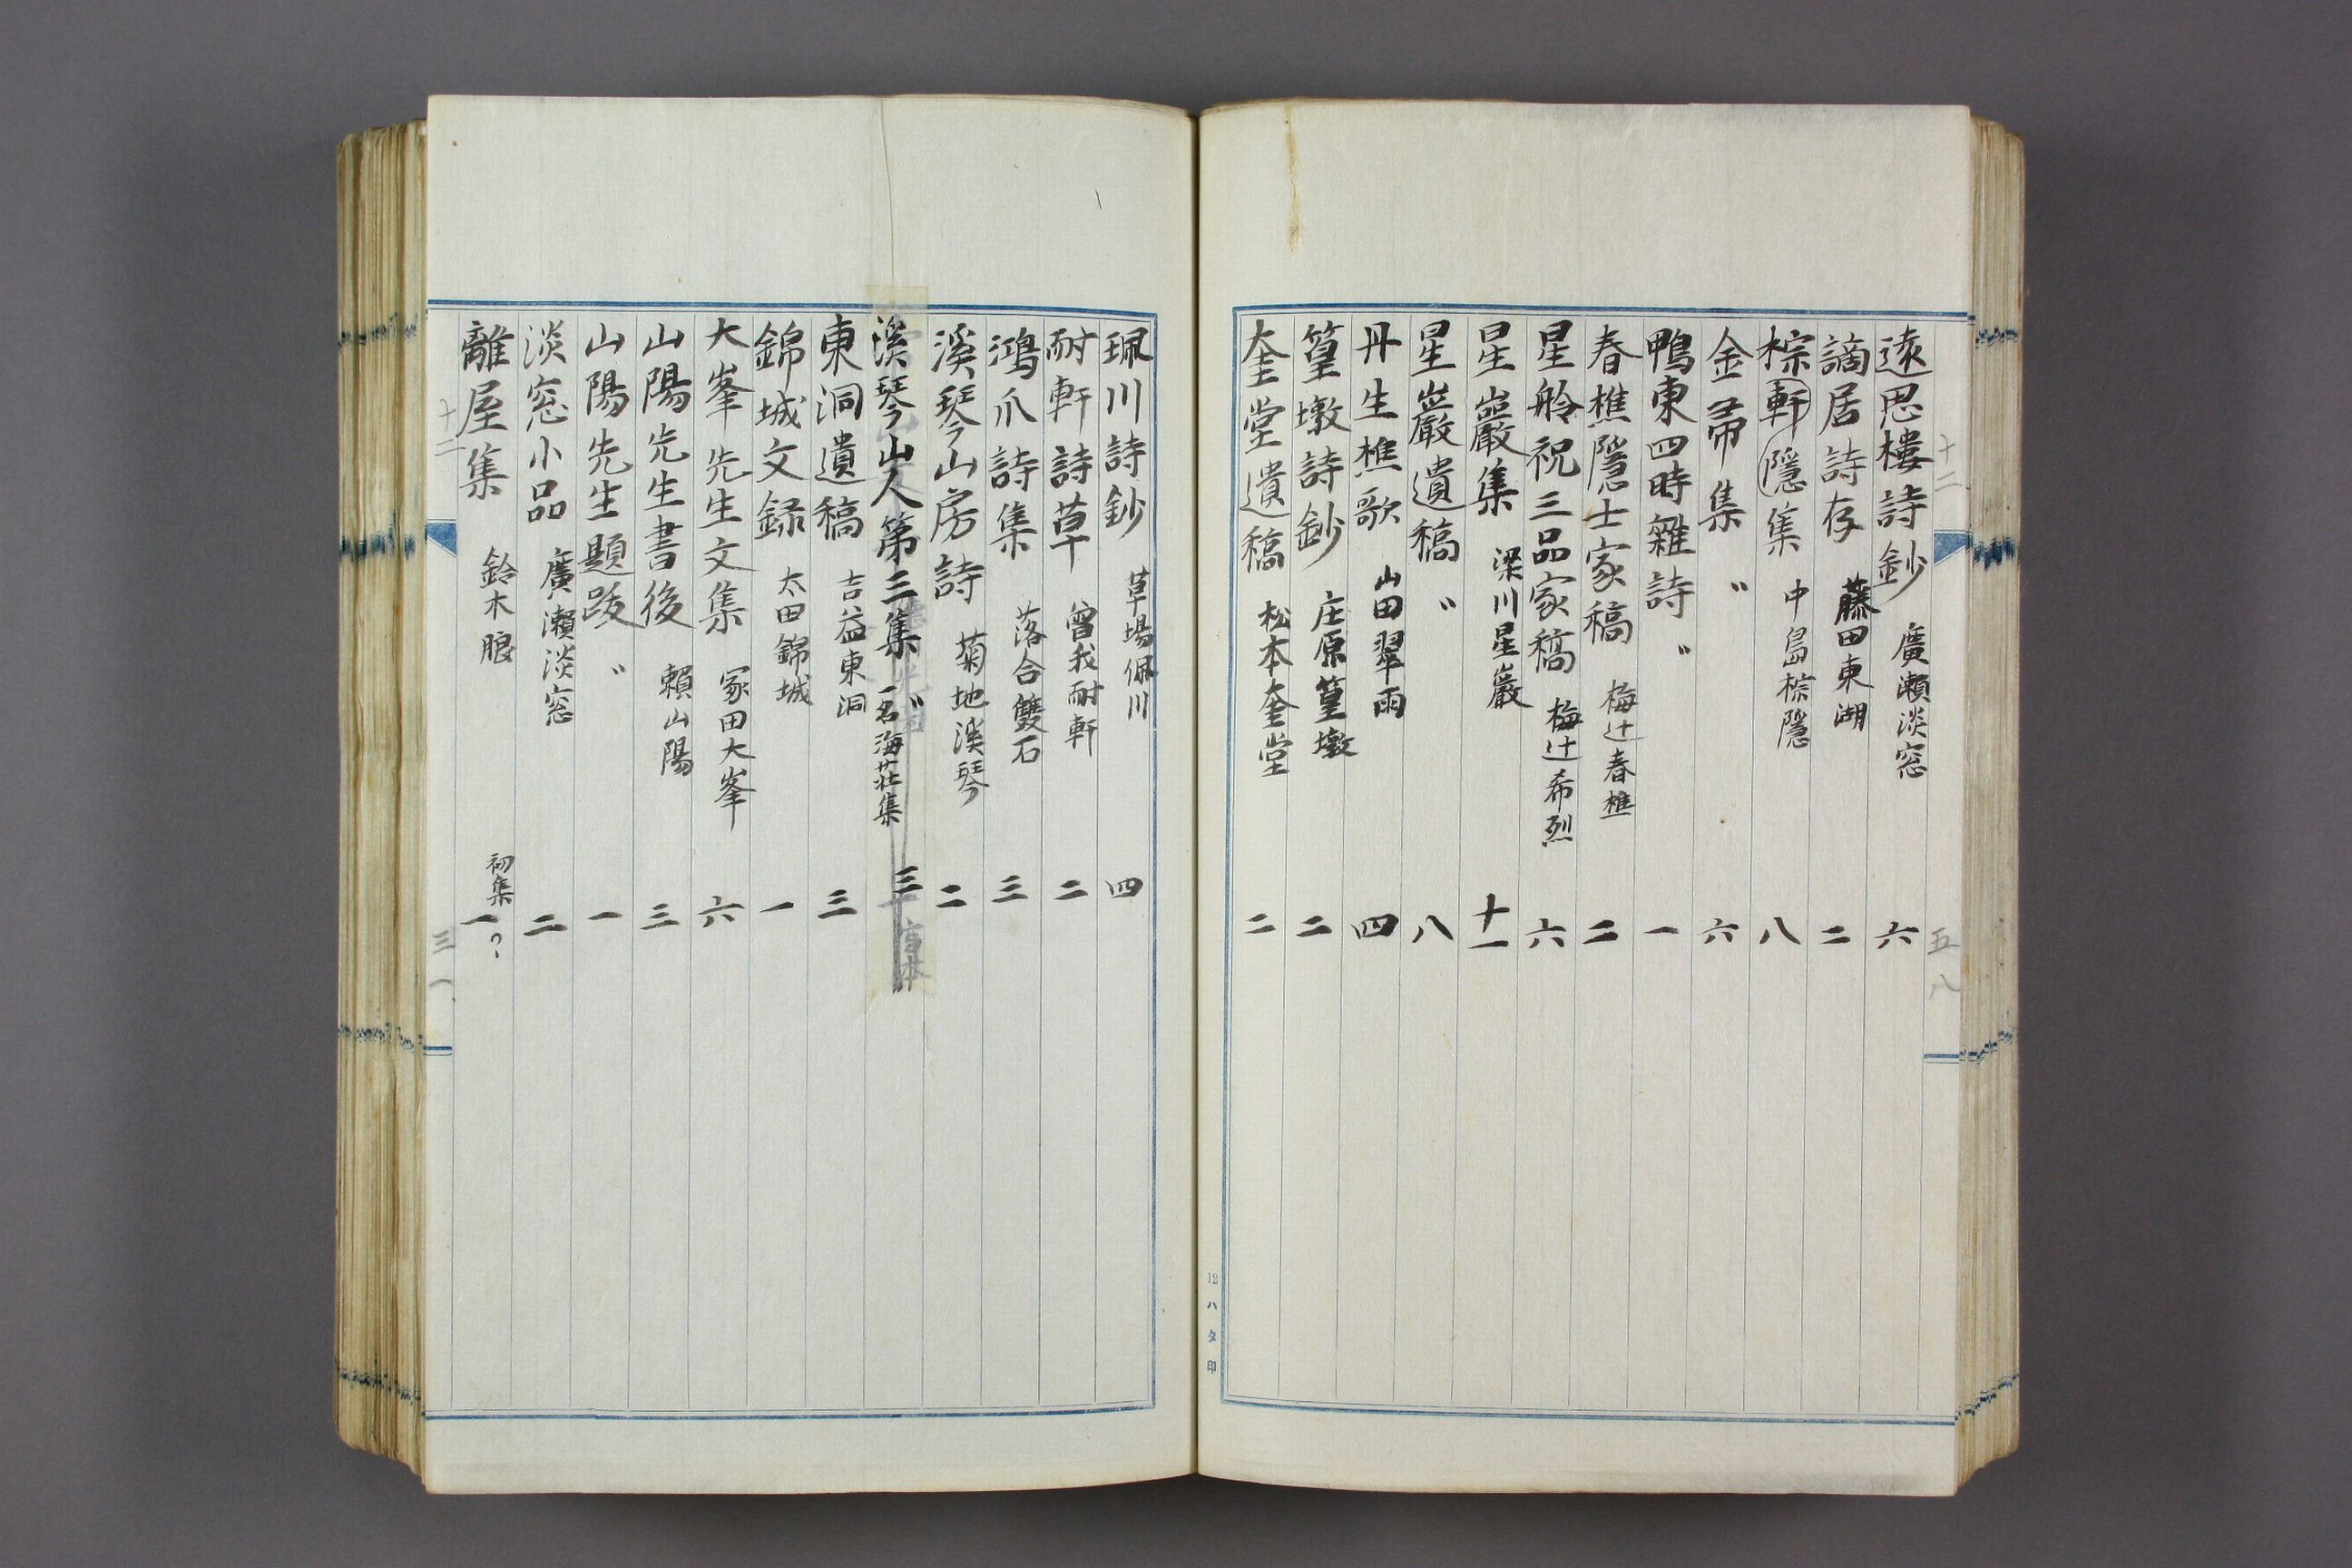 遠思樓詩鈔 廣瀨淡窓 六
謫居詩存 藤田東湖 二
棕軒隱集 中島棕隱 八
金帚集 〃 六
鴨東四時雜詩 〃 一
春樵隱士家稿 梅辻春樵 二
星舲祝三品家稿 梅辻希烈 六
星巖集 梁川星巖 十一
星巖遺稿 〃 八
丹生樵歌 山田翠雨 四
篁墩詩鈔 庄原篁墩 二
奎堂遺稿 松本奎堂 二
十二
五八
12ハタ印
珮川詩鈔 草場佩川 四
耐軒詩草 曾我耐軒 二
鴻爪詩集 落合雙石 三
溪琴山房詩 菊地溪琴 二
溪琴山人第三集 〃 一名海荘集 三
東洞遺稿 吉益東洞 三
錦城文録 太田錦城 一
大峯先生文集 冢田大峯 六
山陽先生書後 賴山陽 三
山陽先生題跋 〃 一
淡窓小品 廣瀨淡窓 二
離屋集 鈴木朖 初集 一?
十二
三一